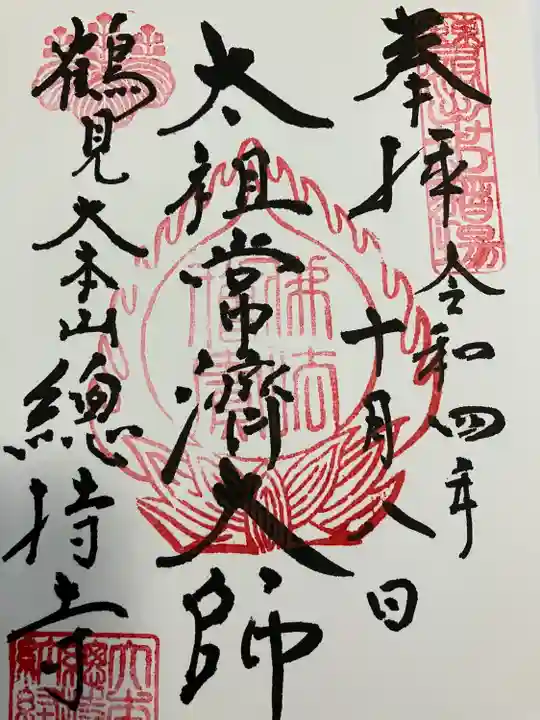 奉拝
令和四年
十月八日
太祖常濟大師
鶴見大本山總持寺
佛法僧寶